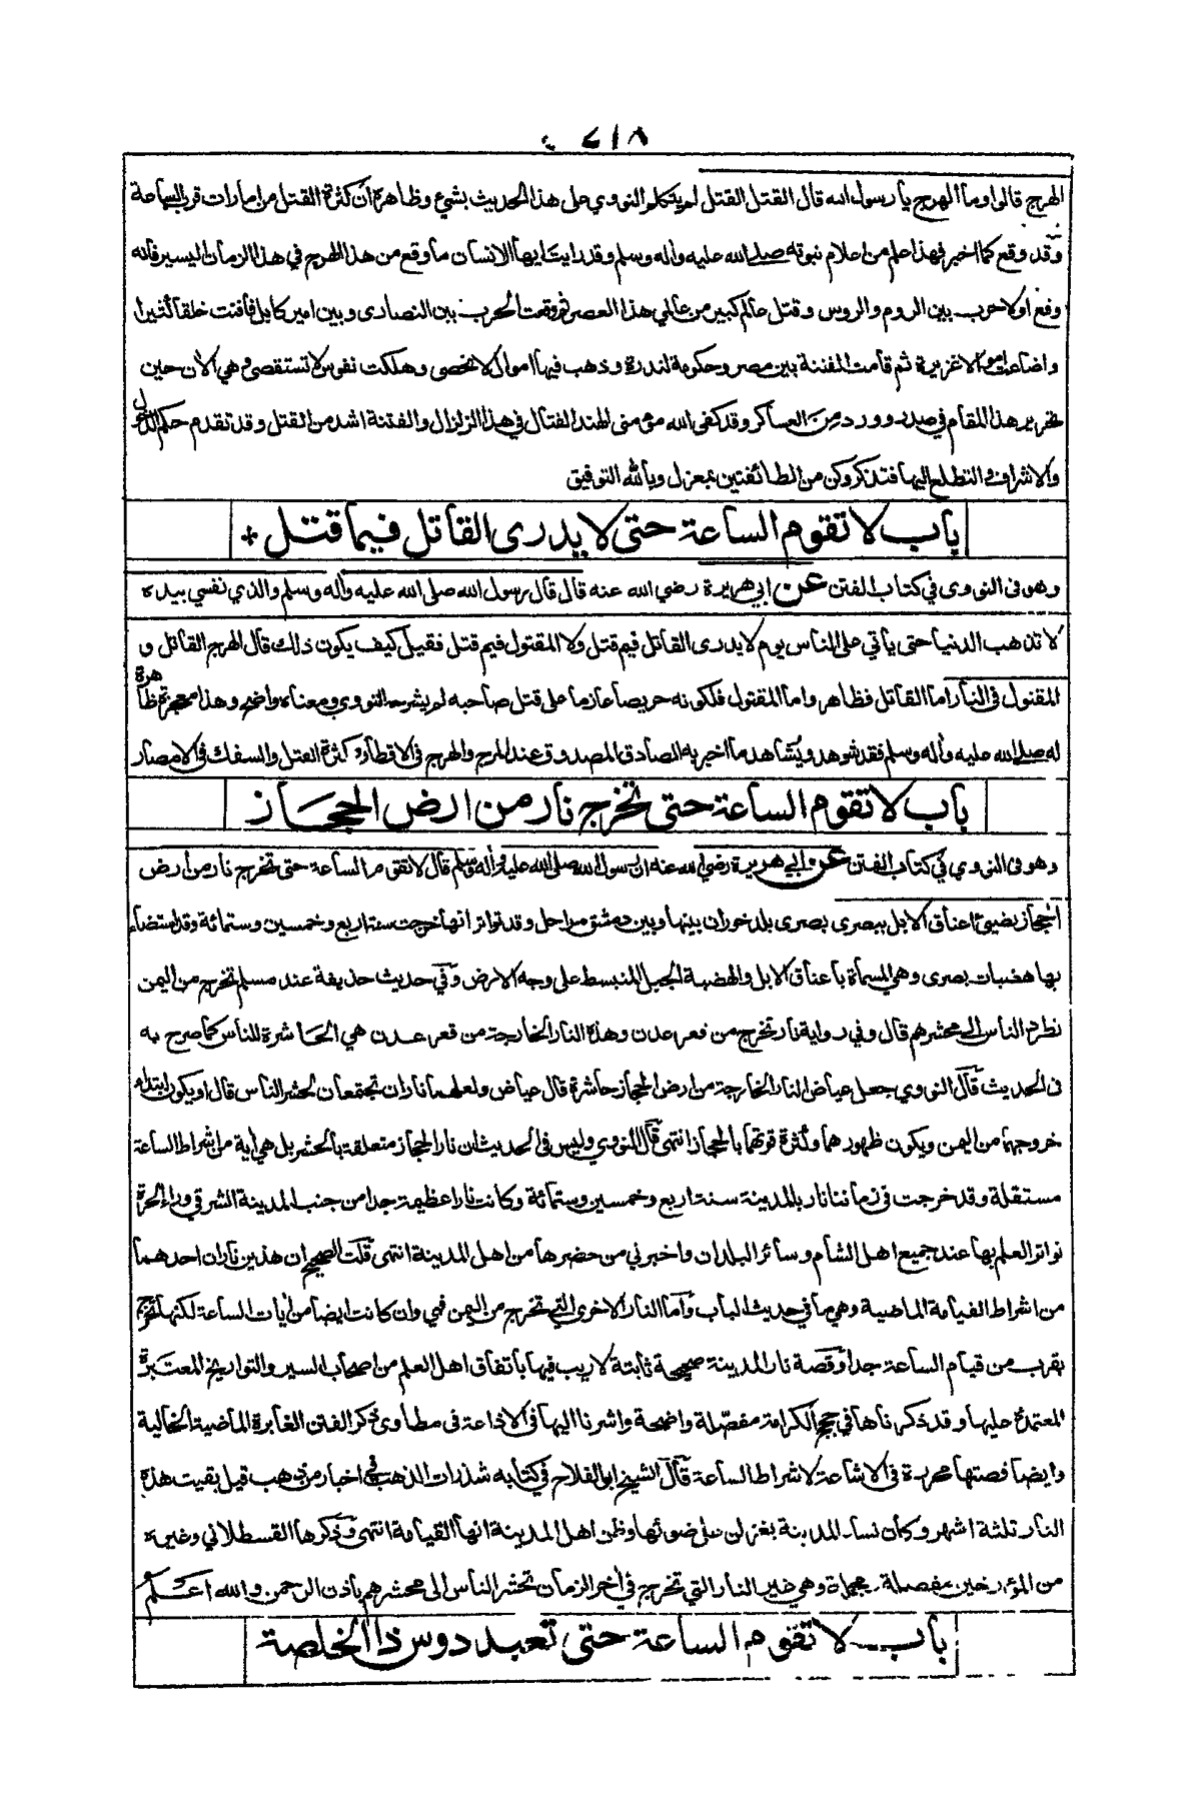 ٧١٨
الهرج قالوا وما الهرج يا رسول الله قال القتل القتل لم يتكلم النووي على هذا الحديث بشيء وظاهره ان كثرة القتل من امارات قرب الساعة
وقد وقع كما اخبر فهذا علم من اعلام نبوته صلى الله عليه واله وسلم وقد رايت ايها الانسان ما وقع من هذا الهرج في هذا الزمان اليسير فانه
وقع اولا حرب بين الروم والروس وقتل عالم كبير من عالمي هذا العصر ثم وقعت الحرب بين النصارى وبين امير كابل فافنت خلقا كثيرا
واضاعت اموالا غزيرة ثم قامت الفتنة بين مصر وحكومة لندرة وذهب فيها اموال لا تحصى وهلكت نفوس لا تستقصى وهي الأن حين
تحرير هذا المقام في صدد ورود من العساكر وقد كفى الله مؤمنى الهند القتال في هذا الزلزال والفتنة اشد من القتل وقد تقدم حكم الدخول
والاشراف والتطلع اليها فتذكر وكن من الطائفتين بمعزل وبالله التوفيق
باب لا تقوم الساعة حتى لا يدرى القاتل فيما قتل
وهو فى النووى في كتاب الفتن عن ابي هريرة رضي الله عنه قال قال رسول الله صلى الله عليه واله وسلم والذي نفسي بيده
لا تذهب الدنيا حتى يأتي على الناس يوم لا يدرى القاتل فيم قتل ولا المقتول فيم قتل فقيل كيف يكون ذلك قال الهرج القاتل و
المقتول فى النار اما القاتل فظاهر واما المقتول فلكونه حريصا عازما على قتل صاحبه لم يشرحه النووي ومعناه واضح وهذا معجزة ظاهرة
له صلى الله عليه واله وسلم فقد شوهد ويشاهد ما اخبر به الصادق المصدوق عند المرج والهرج فى الاقطار وكثرة القتل والسفك فى الامصار
باب لا تقوم الساعة حتى تخرج نار من ارض الحجاز
وهو فى النووي في كتاب الفتن عن ابي هريرة رضي الله عنه ان رسول الله صلى الله عليه واله وسلم قال لا تقوم الساعة حتى تخرج نار من ارض
الحجاز يضيئ اعناق الابل ببصرى بصرى بلد حوران بينها وبين دمشق مراحل وقد تواتر انها خرجت سنة اربع وخمسين وستمائة وقد استضاء
بها هضبات بصرى وهي المسماة بأعناق الابل والهضبة الجبل المنبسط على وجه الارض وفي حديث حذيفة عند مسلم تخرج من اليمن
تطرد الناس الى محشرهم قال وفي رواية نار تخرج من قعر عدن وهذه النار الخارجة من قعر عدن هي الحاشرة للناس كما صرح به
فى الحديث قال النووي جعل عياض النار الخارجة من ارض الحجاز حاشرة قال عياض ولعلهما ناران تجتمعان لحشر الناس قال او يكون ابتداء
خروجها من اليمن ويكون ظهورها وكثرة قوتها بالحجاز انتهى قال النووي وليس فى الحديث ان نار الحجاز متعلقة بالحشر بل هي اية من اشراط الساعة
مستقلة وقد خرجت فى زماننا نار بالمدينة سنة اربع وخمسين وستمائة وكانت نارا عظيمة جدا من جنب المدينة الشرقي وراء الحرة
تواتر العلم بها عند جميع اهل الشام وسائر البلدان واخبرني من حضرها من اهل المدينة انتهى قلت الصحيح ان هذين ناران احدهما
من اشراط القيامة الماضية وهي ما في حديث الباب واما النار الاخرى التي تخرج من اليمن فهي وان كانت ايضا من أيات الساعة لكنها تخرج
بقرب من قيام الساعة جدا وقصة نار المدينة صحيحة ثابتة لا ريب فيها باتفاق اهل العلم من اصحاب السير والتواريخ المعتبرة
المعتمدة عليها وقد ذكرناها في حجج الكرامة مفصلة واضحة واشرنا اليها فى الاذاعة فى مطاوى ذكر الفتن الغابرة الماضية الخالية
وايضا قصتها محررة فى الاشاعة لاشراط الساعة قال الشيخ ابو الفلاح في كتابه شذرات الذهب في اخبار من ذهب قيل بقيت هذه
النار ثلثة اشهر وكان نساء المدينة يغزلن على ضوئها وظن اهل المدينة انها القيامة انتهى وذكرها القسطلاني وغيره
من المؤرخين مفصلة مجملة وهي غير النار التي تخرج في أخر الزمان تحشر الناس الى محشرهم بأذن الرحمن والله اعلم
باب لا تقوم الساعة حتى تعبد دوس ذا الخلصة